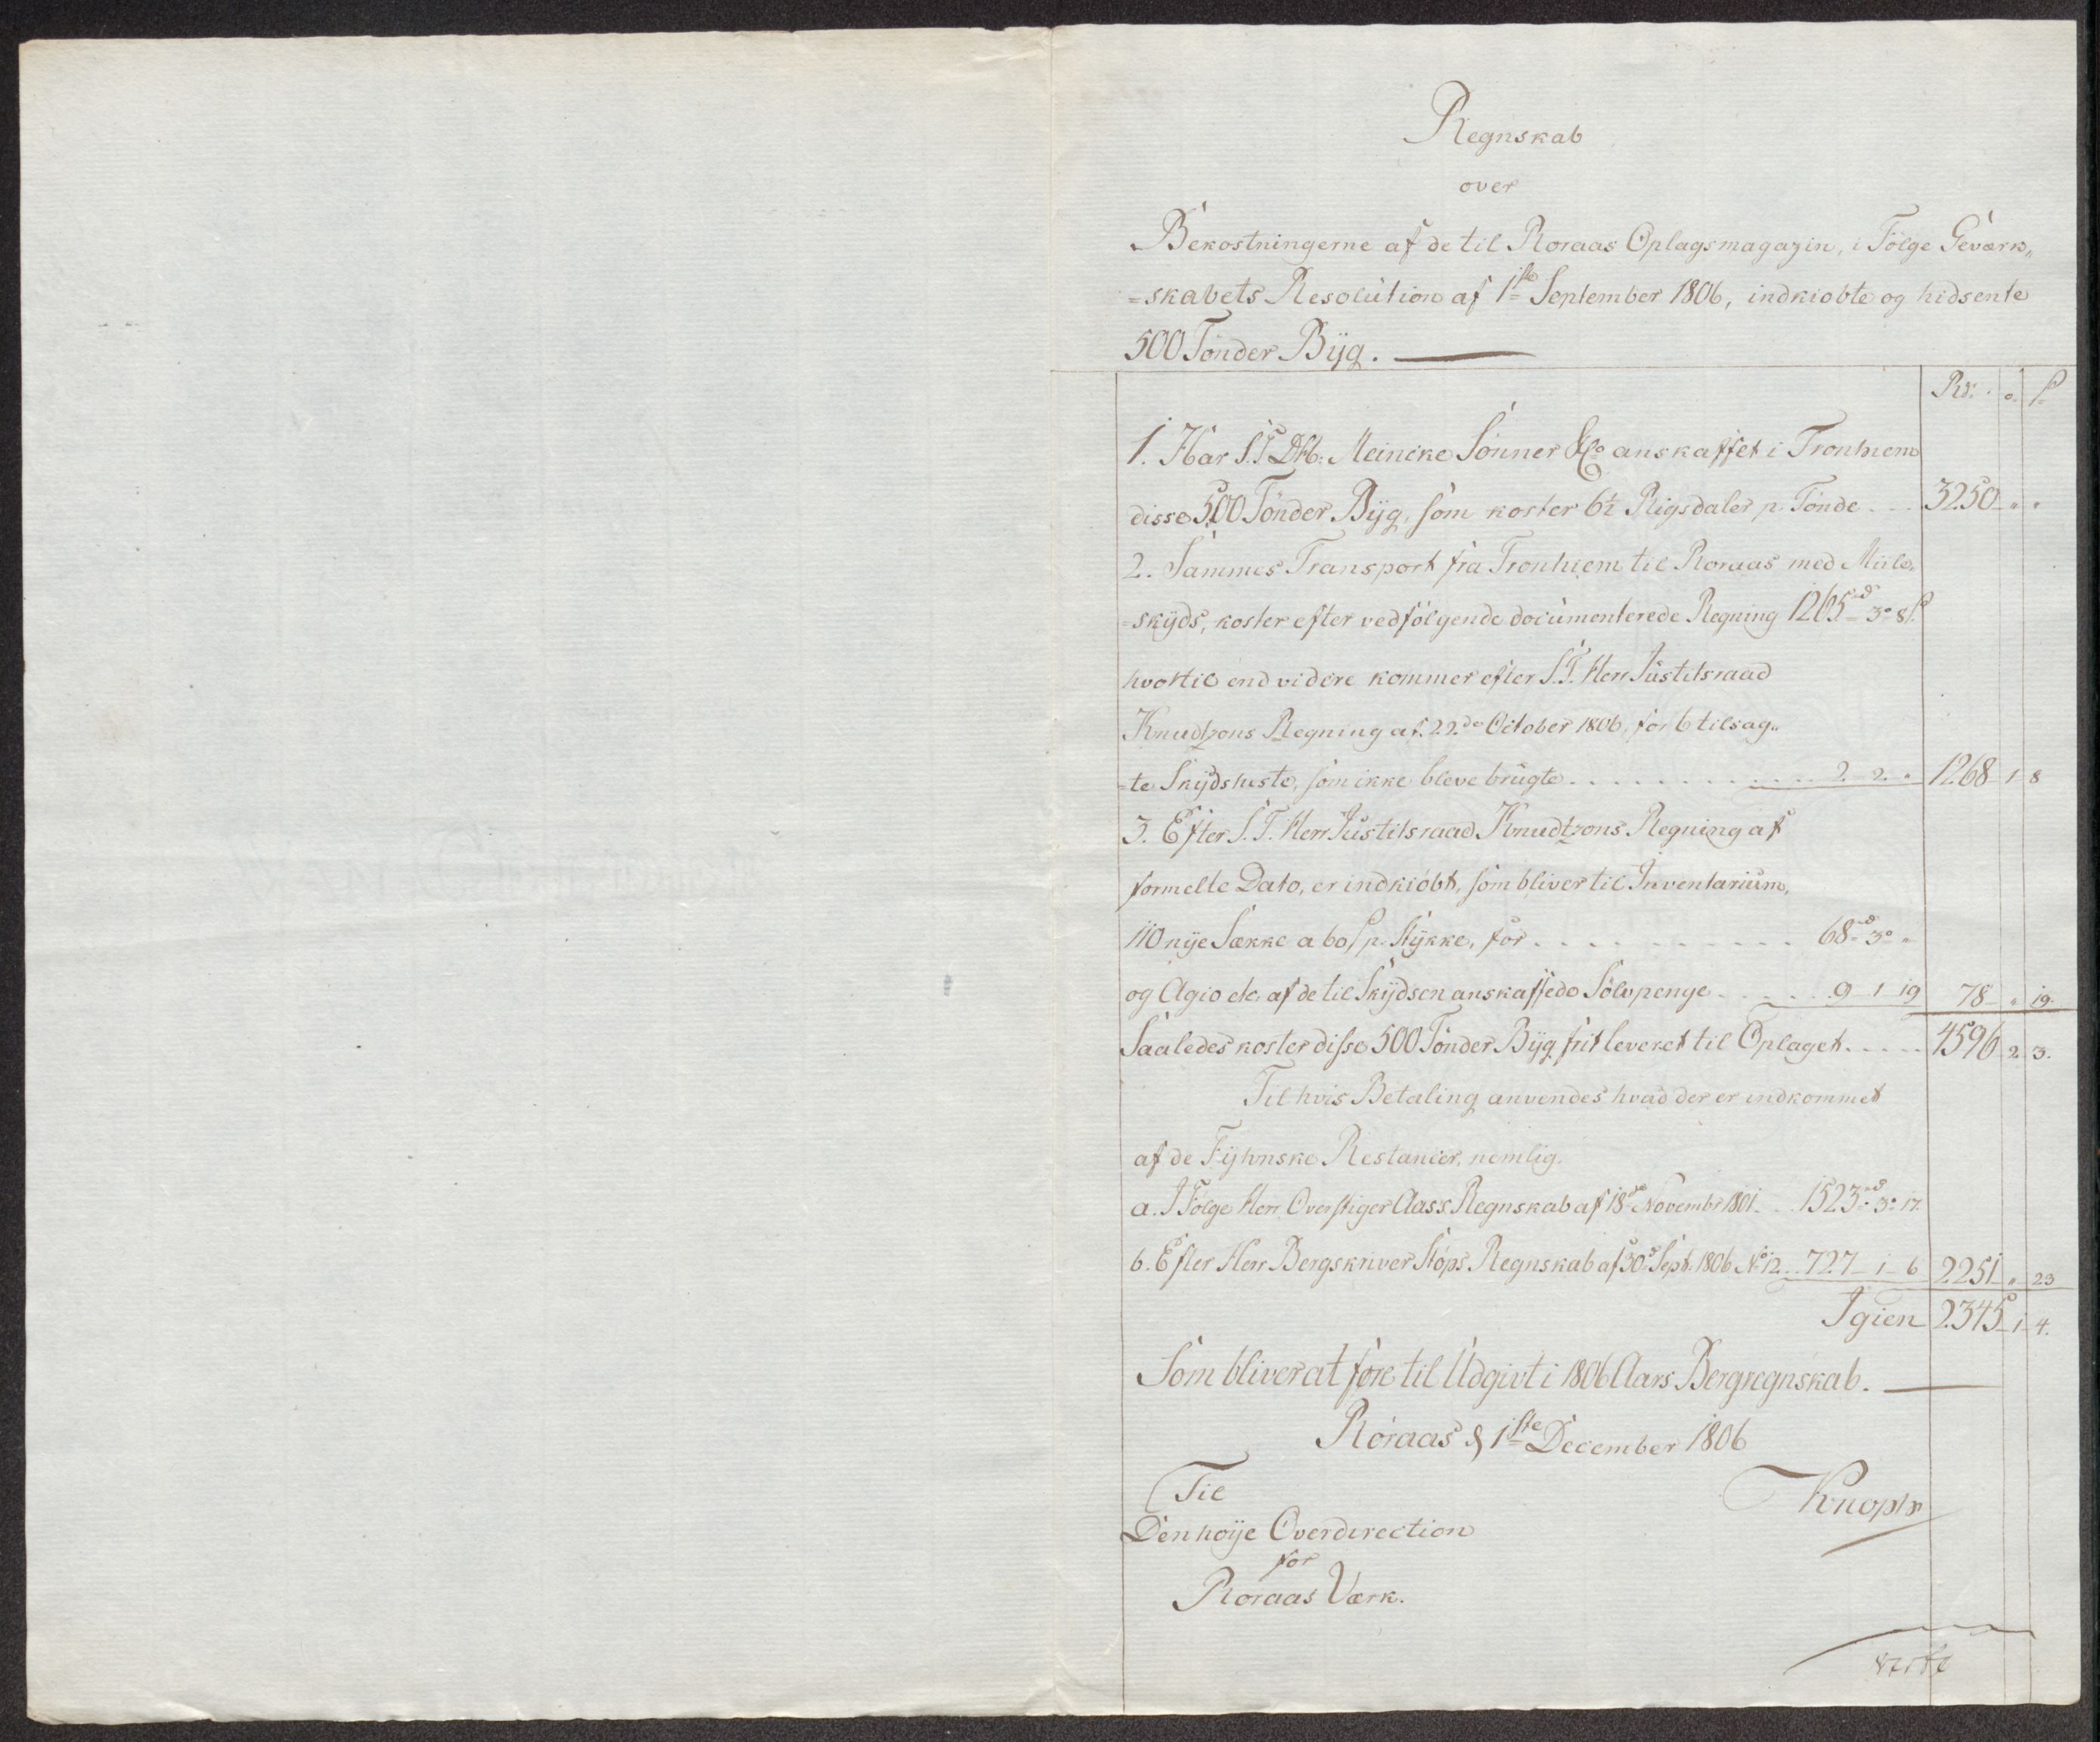 Regnskab
over
Bekostningerne af de til Röraas Oplagsmagazin, i Fölge Geværk„
=skabets Resolution af 1ste September 1806, indkiöbte og hidsente
500 Tönder Byg.
Rd. o. s
1. Har S. T. DHb. Meincke Sönner & Co anskaffet i Tronhiem
disse 500 Tönder Byg, som koster 6½ Rigsdaler p. Tönde ... 3250 „ „
2. Sammes Transport fra Tronhiem til Röraas med Miile„
=skyds, koster efter vedfölgende documenterede Regning 1265rd 3o 8s
hvortil end videre kommer efter S. T. Herr Justitsraad
Knudtzons Regning af 22de October 1806, for 6 tilsag„
=te Skydsheste, som ikke bleve brugte ............ 2 2 „ 1268 1 8
3. Efter S. T. Herr Justitsraad Knudtzons Regning af
formelte Dato, er indkiöbt, som bliver til Inventarium,
110 nye Sække a 60 s p. Stykke, for ............ 68rd 3o „
og Agio etc. af de til Skydsen anskaffede Sölvpenge ...... 9 1 19 78 „ 19.
Saaledes koster disse 500 Tönder Byg frit leveret til Oplaget ..... 4596 2 3.
Til hvis Betaling anvendes hvad der er indkommet
af de Fyhnske Restancer, nemlig.
a. I Fölge Herr Overstiger Aass Regnskab af 18de Novembr 1801 .. 1523rd 3o 17.
b. Efter Herr Bergskriver Stöps Regnskab af 30d Sept. 1806 No 12 .. 727 1 6 2251 „ 23
Igien 2345 1 4.
Som bliver at före til Udgivt i 1806 Aars Bergregnskab.
Röraas d 1ste December 1806
Til
Knoph
Den höye Overdirection
for
Röraas Værk.
verte